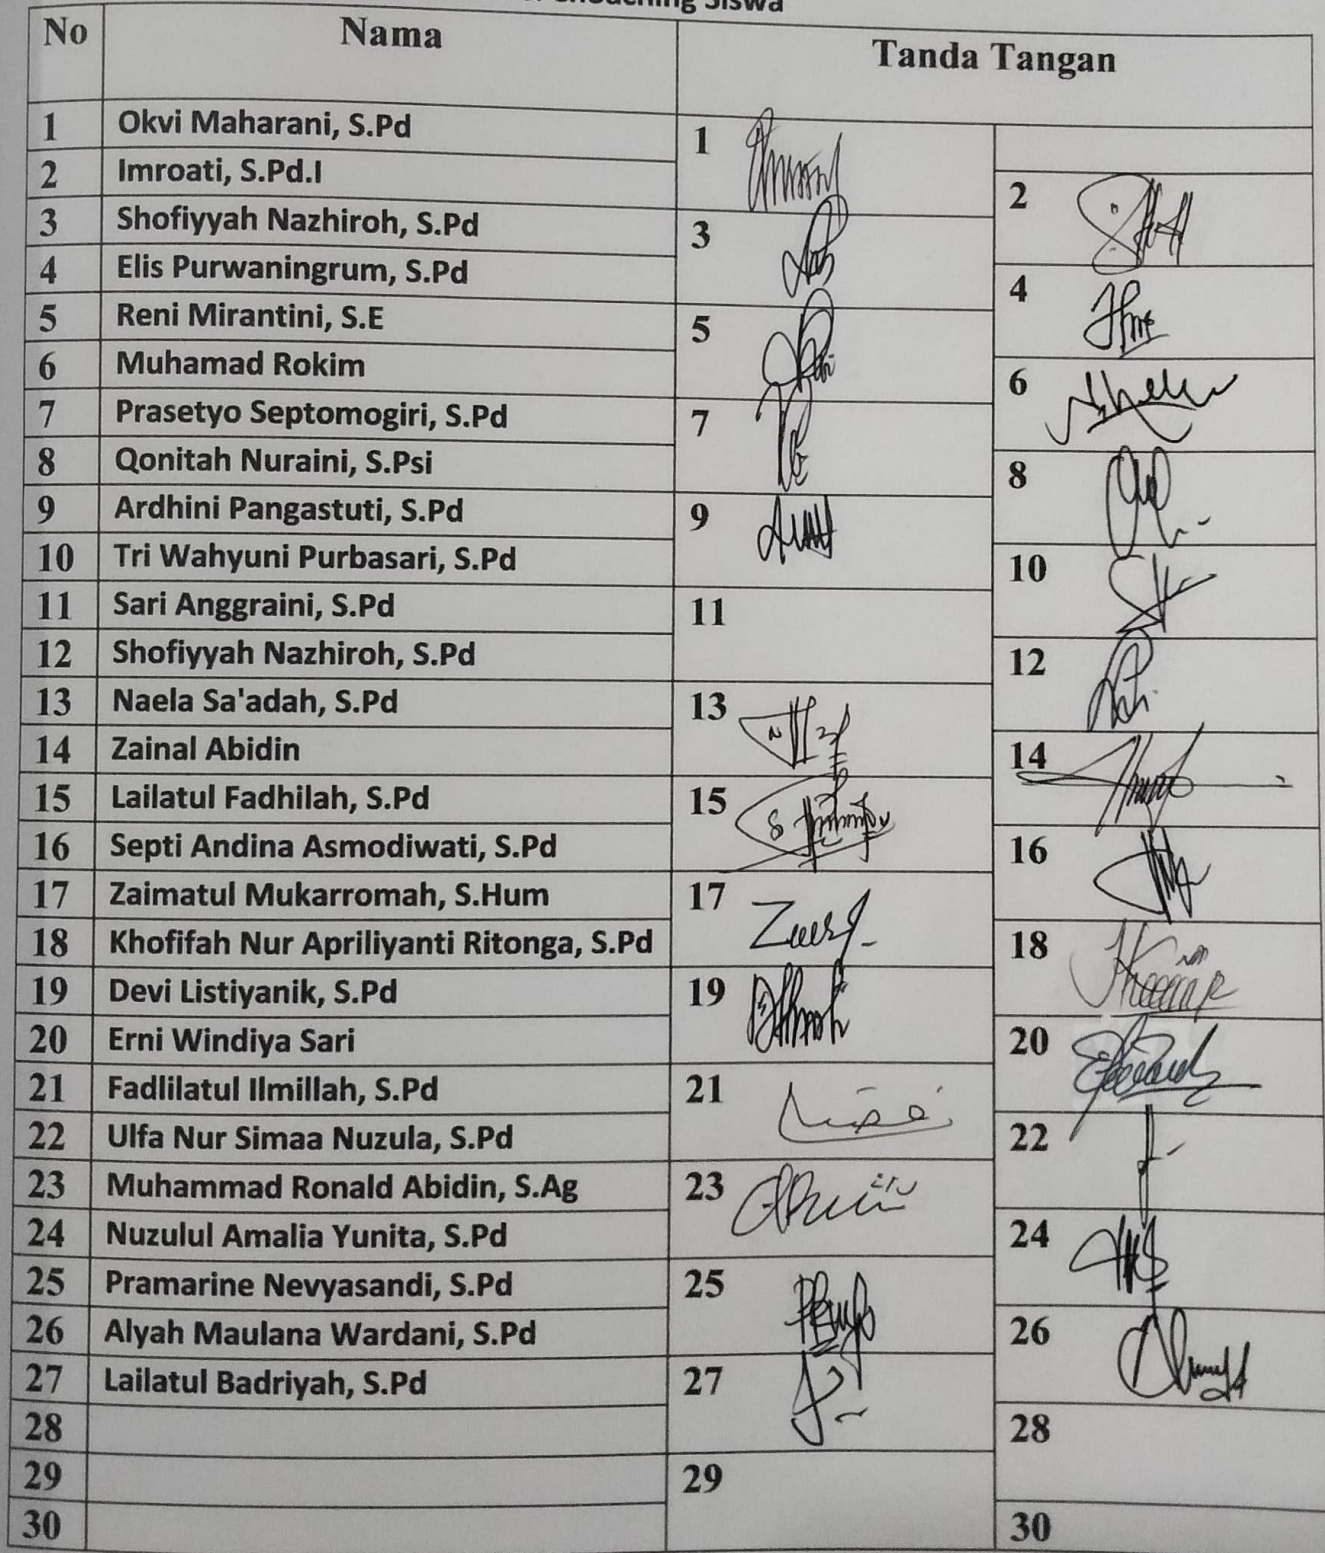 Siswa
No Nama Tanda Tangan
1 Okvi Maharani, S.Pd 1
2 Imroati, S.Pd.I 2
3 Shofiyyah Nazhiroh, S.Pd 3
4 Elis Purwaningrum, S.Pd 4
5 Reni Mirantini, S.E 5
6 Muhamad Rokim 6
7 Prasetyo Septomogiri, S.Pd 7
8 Qonitah Nuraini, S.Psi 8
9 Ardhini Pangastuti, S.Pd 9
10 Tri Wahyuni Purbasari, S.Pd 10
11 Sari Anggraini, S.Pd 11
12 Shofiyyah Nazhiroh, S.Pd 12
13 Naela Sa'adah, S.Pd 13
14 Zainal Abidin 14
15 Lailatul Fadhilah, S.Pd 15
16 Septi Andina Asmodiwati, S.Pd 16
17 Zaimatul Mukarromah, S.Hum 17
18 Khofifah Nur Apriliyanti Ritonga, S.Pd 18
19 Devi Listiyanik, S.Pd 19
20 Erni Windiya Sari 20
21 Fadlilatul Ilmillah, S.Pd 21
22 Ulfa Nur Simaa Nuzula, S.Pd 22
23 Muhammad Ronald Abidin, S.Ag 23
24 Nuzulul Amalia Yunita, S.Pd 24
25 Pramarine Nevyasandi, S.Pd 25
26 Alyah Maulana Wardani, S.Pd 26
27 Lailatul Badriyah, S.Pd 27
28 28
29 29
30 30